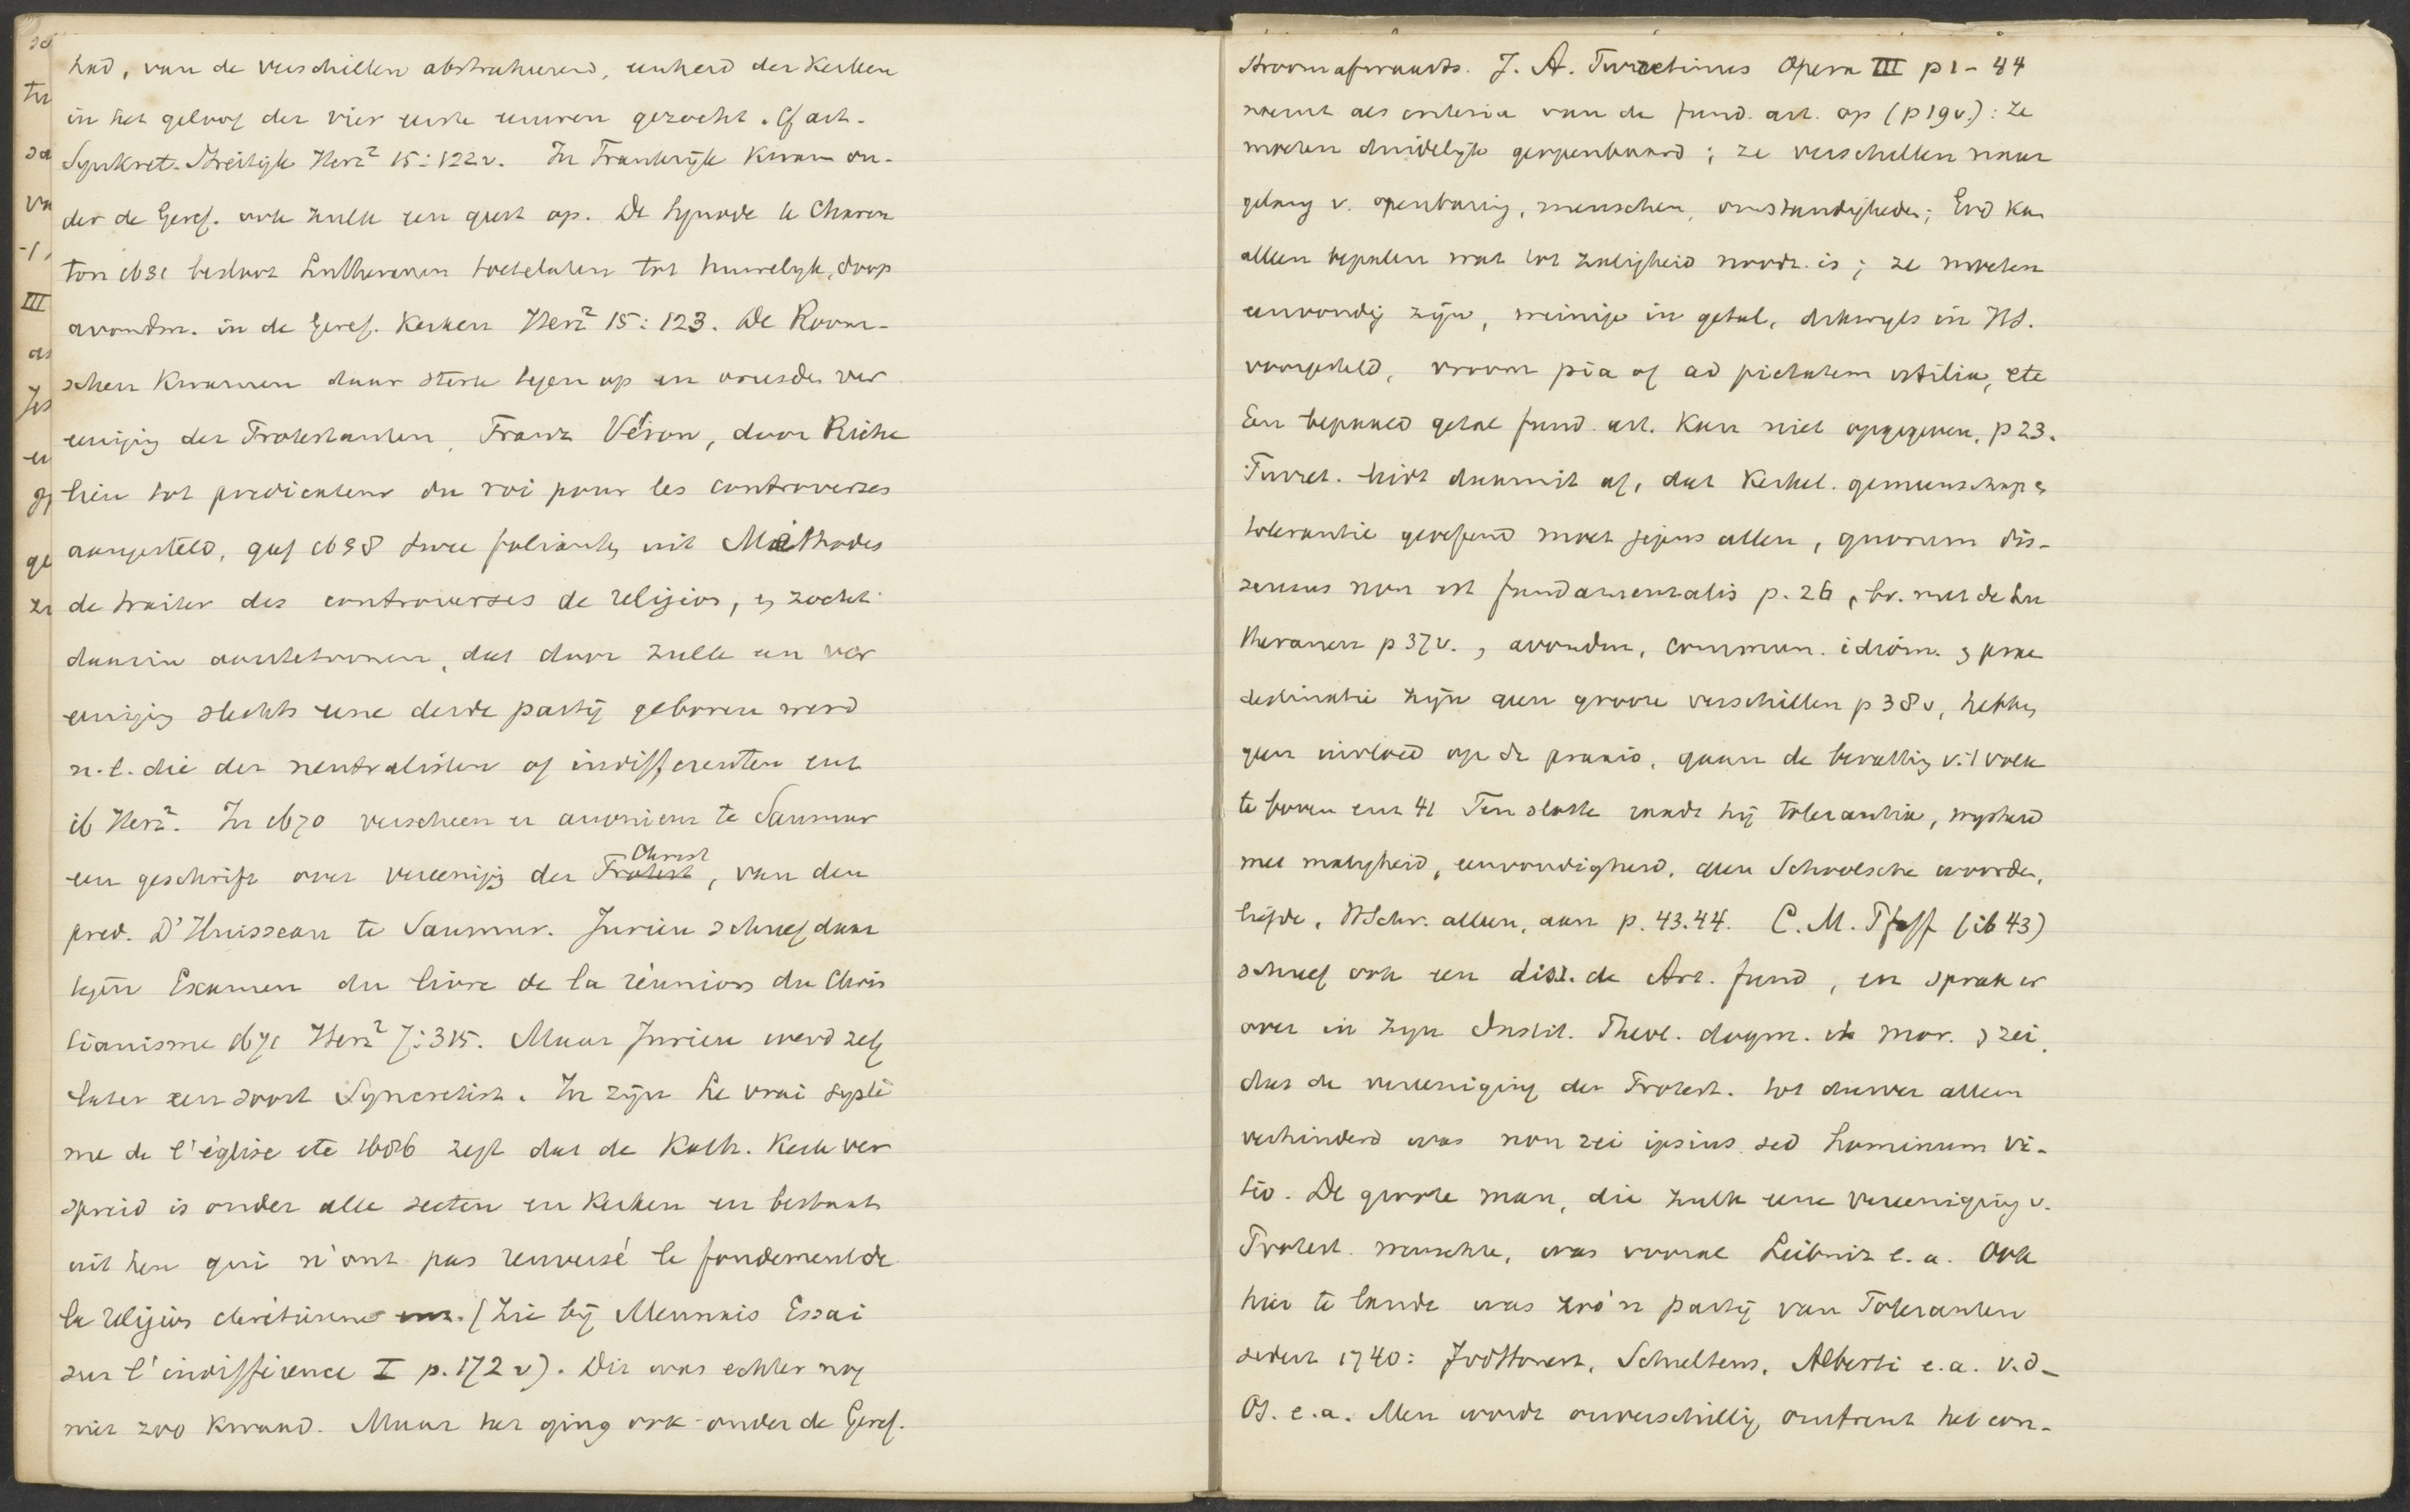 had, van de verschillen abstraheerend, eenheid der Kerken
in het geloof der vier eerste eeuwen gezocht. Cf art.
Synkret. Streitigk Herz² 15:122v. In Frankrijk kwam on-
der de Geref. ook zulk een geest op. De Synode te Charen
ton 1631 besloot Lutheranen toetelaten tot huwelijk, doop
avondm. in de Geref. Kerken Herz² 15:123. De Room-
schen kwamen daar sterk tegen op en onder ver
eeniging der Protestanten, Franz Véron, door Riche
lieu tot predicateur du roi pour les controverses
aangesteld, gaf 1638 twee folianten uit Méthodes
de traiter des controverses de religion, en zocht
daarin aantetoonen, dat door zulk een ver
eeniging slechts eene derde partij geboren werd
n.l. die der neutralisten of indifferenten enz
ib Herz². In 1670 verscheen er anoniem te Saumur
een geschrift over vereenigg der Protest Christ, van den
pred. D'Huisseau te Saumur. Jurieu schreef daar
tegen Examen du livre de la réunion du Chris
tianisme 1671 Herz² 7:315. Maar Jurieu werd zelf
later een soort Syncretist. In zijn Le vrai systè
me de l'église etc 1686 zegt dat de Kath. Kerk ver
spreid is onder alle secten en Kerken en bestaat
uit hen qui n'ont pas renversé le fondement de
la religion chrétienne. (Zie bij Mennais Essai
sur l'indifférence I p. 172 v). Dit was echter nog
niet zoo kwaad. Maar het ging ook onder de Geref.
stroomafwaarts. J. A. Turretinus Opera III p 1-44
noemt als criteria van de fund. art. op (p 19v.): ze
moeten duidelijk geopenbaard; ze verschillen naar
gelang v. openbaring, menschen, omstandigheden; God kan
alleen bepalen wat tot zaligheid noodz. is; ze moeten
eenvoudig zijn, weinige in getal, dikwijls in HS.
voorgesteld, vroom pia of ad pietatem utilia, etc
Een bepaald getal fund. art. kan niet opgegeven, p 23.
Turret. leidt daaruit af, dat kerkel. gemeenschap en
tolerantie geoefend moet jegens allen, quorum dis-
sensus non est fundamentalis p. 26, bv. met de Lu
theranen p 37v., avondm, commun. idiom. en prae
destinatie zijn geen groote verschillen p 38v, hebben
geen invloed op de praxis, gaan de bevatting v. 't volk
te boven enz 41 Ten slotte raadt hij tolerantie, wijsheid
met matigheid, eenvoudigheid, geen Schoolsche woorden,
liefde, HSchr. alleen, aan p. 43.44. C. M. Pfaff (ib 43)
schreef ook een diss. de Art. fund, en sprak er
over in zijn Instit. Theol. dogm. et mor. en zei,
dat de vereeniging der Protest. tot dusver alleen
verhinderd was non rei ipsius sed hominum vi-
tio. De groote man, die zulk eene vereeniging v.
Protest. wenschte, was vooral Leibniz e.a. Ook
hier te lande was zoo'n partij van Toleranten
sedert 1740: Schultens, Alberti e.a. v.d.
Os. e.a. Men wordt onverschillig omtrent het con-